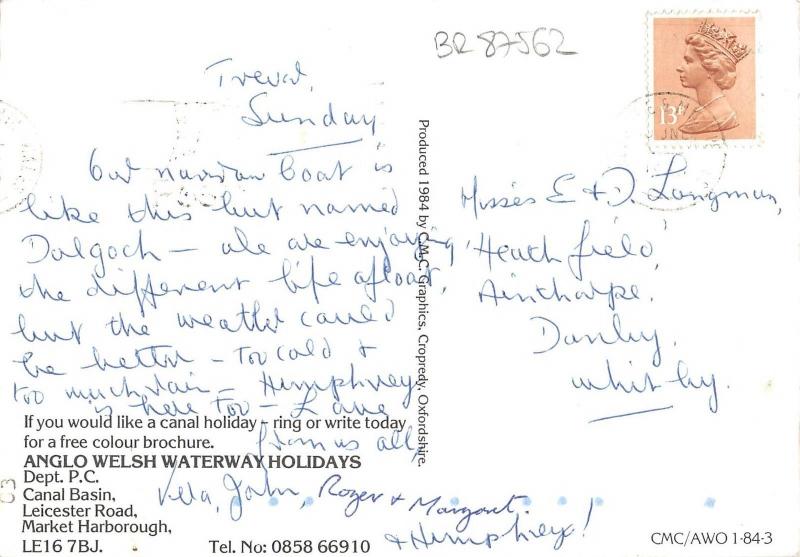 BR 87562
Trevor,
Sunday
Our narrow boat is
like this but named
Dolgoch — We are enjoying
the different life afloat,
but the weather could
be better — too cold &
too much rain — Humphrey
is here too — Love
from us all,
Vera, John, Roger & Margaret.
& Humphrey!
If you would like a canal holiday – ring or write today
for a free colour brochure.
ANGLO WELSH WATERWAY HOLIDAYS
Dept. P.C.
Canal Basin,
Leicester Road,
Market Harborough,
LE16 7BJ.
Tel. No: 0858 66910
Produced 1984 by C.M.C. Graphics, Cropredy, Oxfordshire.
13P
Misses E & D. Langman,
Heathfield,
Ainthorpe,
Danby,
Whitby.
CMC/AWO 1-84-3